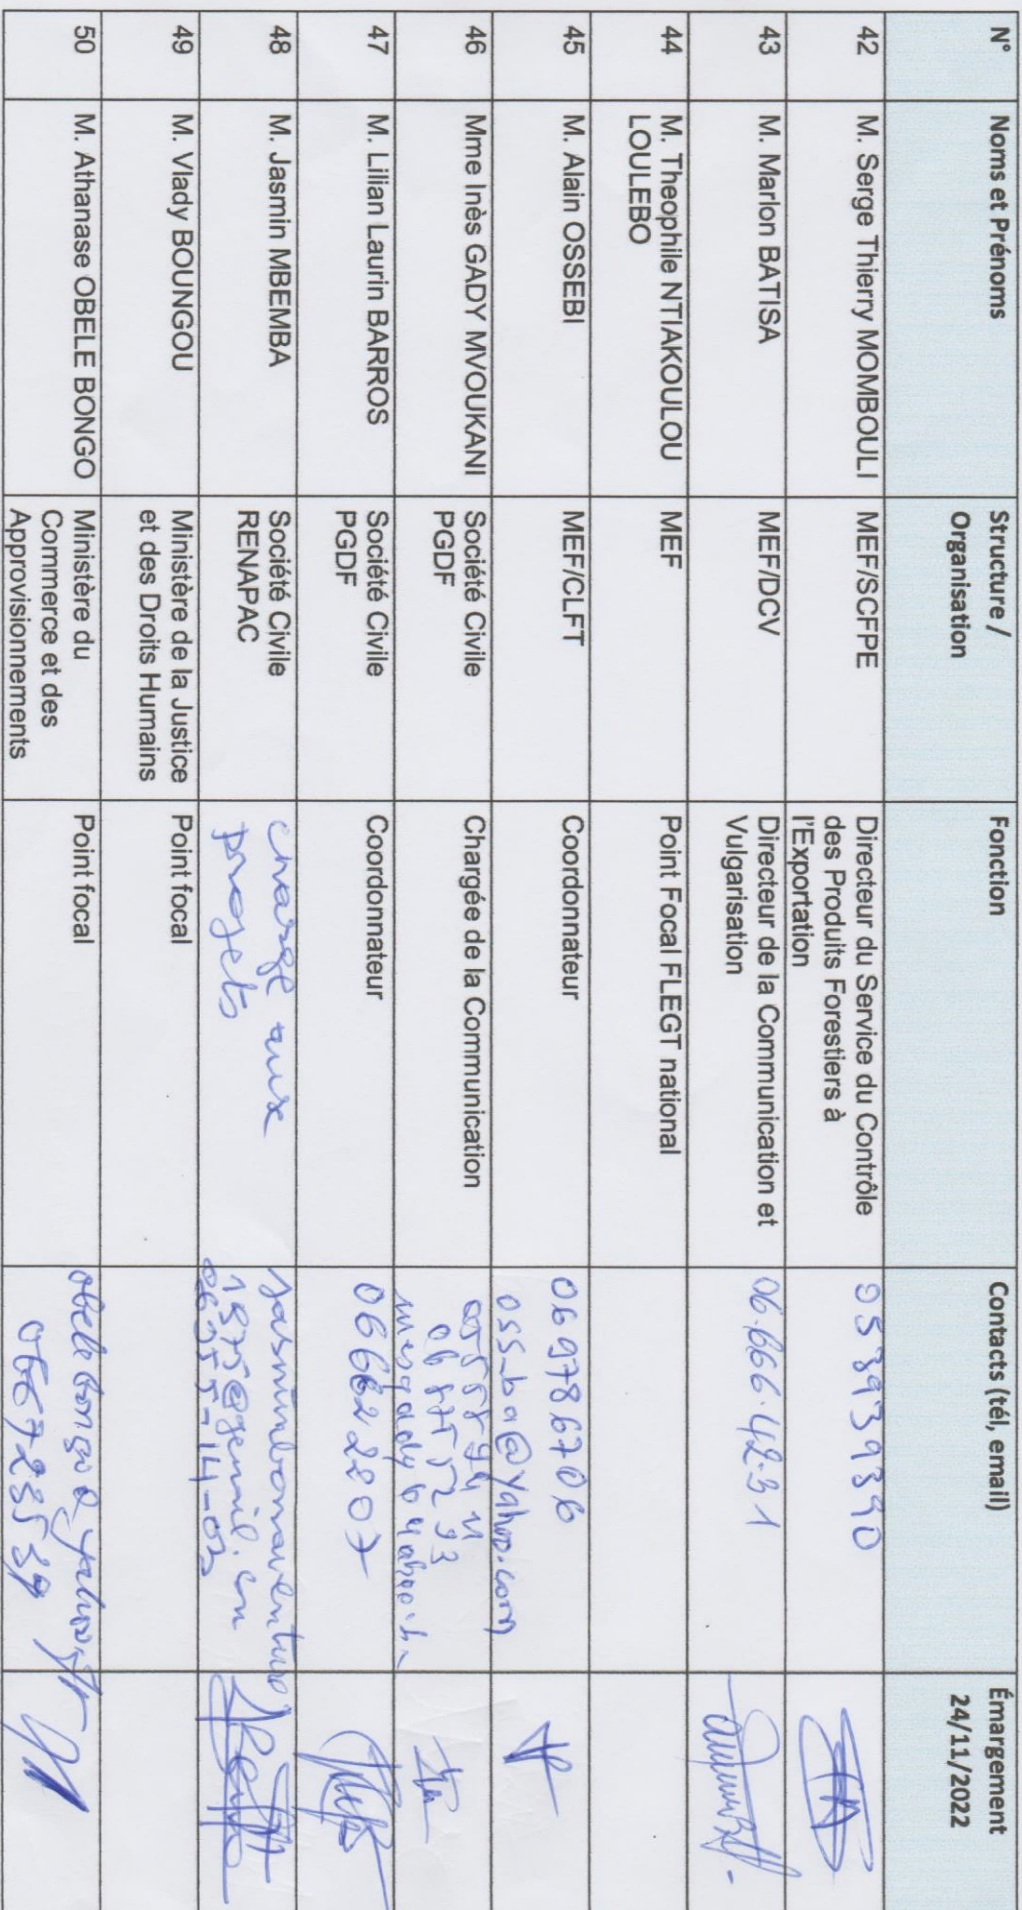 N°
Noms et Prénoms
Structure /
Organisation
Fonction
Contacts (tél, email)
Émargement
24/11/2022
42
M. Serge Thierry MOMBOULI
MEF/SCFPE
Directeur du Service du Contrôle
des Produits Forestiers à
l'Exportation
053939390
43
M. Marlon BATISA
MEF/DCV
Directeur de la Communication et
Vulgarisation
06.666.42.31
44
M. Theophile NTIAKOULOU
LOULEBO
MEF
Point Focal FLEGT national
45
M. Alain OSSEBI
MEF/CLFT
Coordonnateur
069786706
oss_ba@yahoo.com
46
Mme Inès GADY MVOUKANI
Société Civile
PGDF
Chargée de la Communication
47
M. Lilian Laurin BARROS
Société Civile
PGDF
Coordonnateur
066622807
48
M. Jasmin MBEMBA
Société Civile
RENAPAC
charge aux
projets
jasminbonaventure
1975@gmail.com
49
M. Vlady BOUNGOU
Ministère de la Justice
et des Droits Humains
Point focal
50
M. Athanase OBELE BONGO
Ministère du
Commerce et des
Approvisionnements
Point focal
obelebongo@yahoo.fr